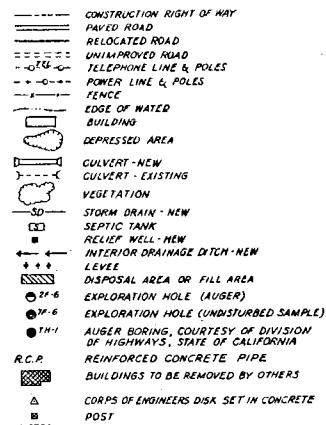 CONSTRUCTION RIGHT OF WAY
PAVED ROAD
RELOCATED ROAD
UNIMPROVED ROAD
TEL TELEPHONE LINE & POLES
POWER LINE & POLES
FENCE
EDGE OF WATER
BUILDING
DEPRESSED AREA
CULVERT-NEW
CULVERT-EXISTING
VEGETATION
SD STORM DRAIN-NEW
SEPTIC TANK
RELIEF WELL-NEW
INTERIOR DRAINAGE DITCH-NEW
LEVEE
DISPOSAL AREA OR FILL AREA
2F-6 EXPLORATION HOLE (AUGER)
7F-6 EXPLORATION HOLE (UNDISTURBED SAMPLE)
TH-1 AUGER BORING, COURTESY OF DIVISION
OF HIGHWAYS, STATE OF CALIFORNIA
R.C.P. REINFORCED CONCRETE PIPE
BUILDINGS TO BE REMOVED BY OTHERS
CORPS OF ENGINEERS DISK SET IN CONCRETE
POST